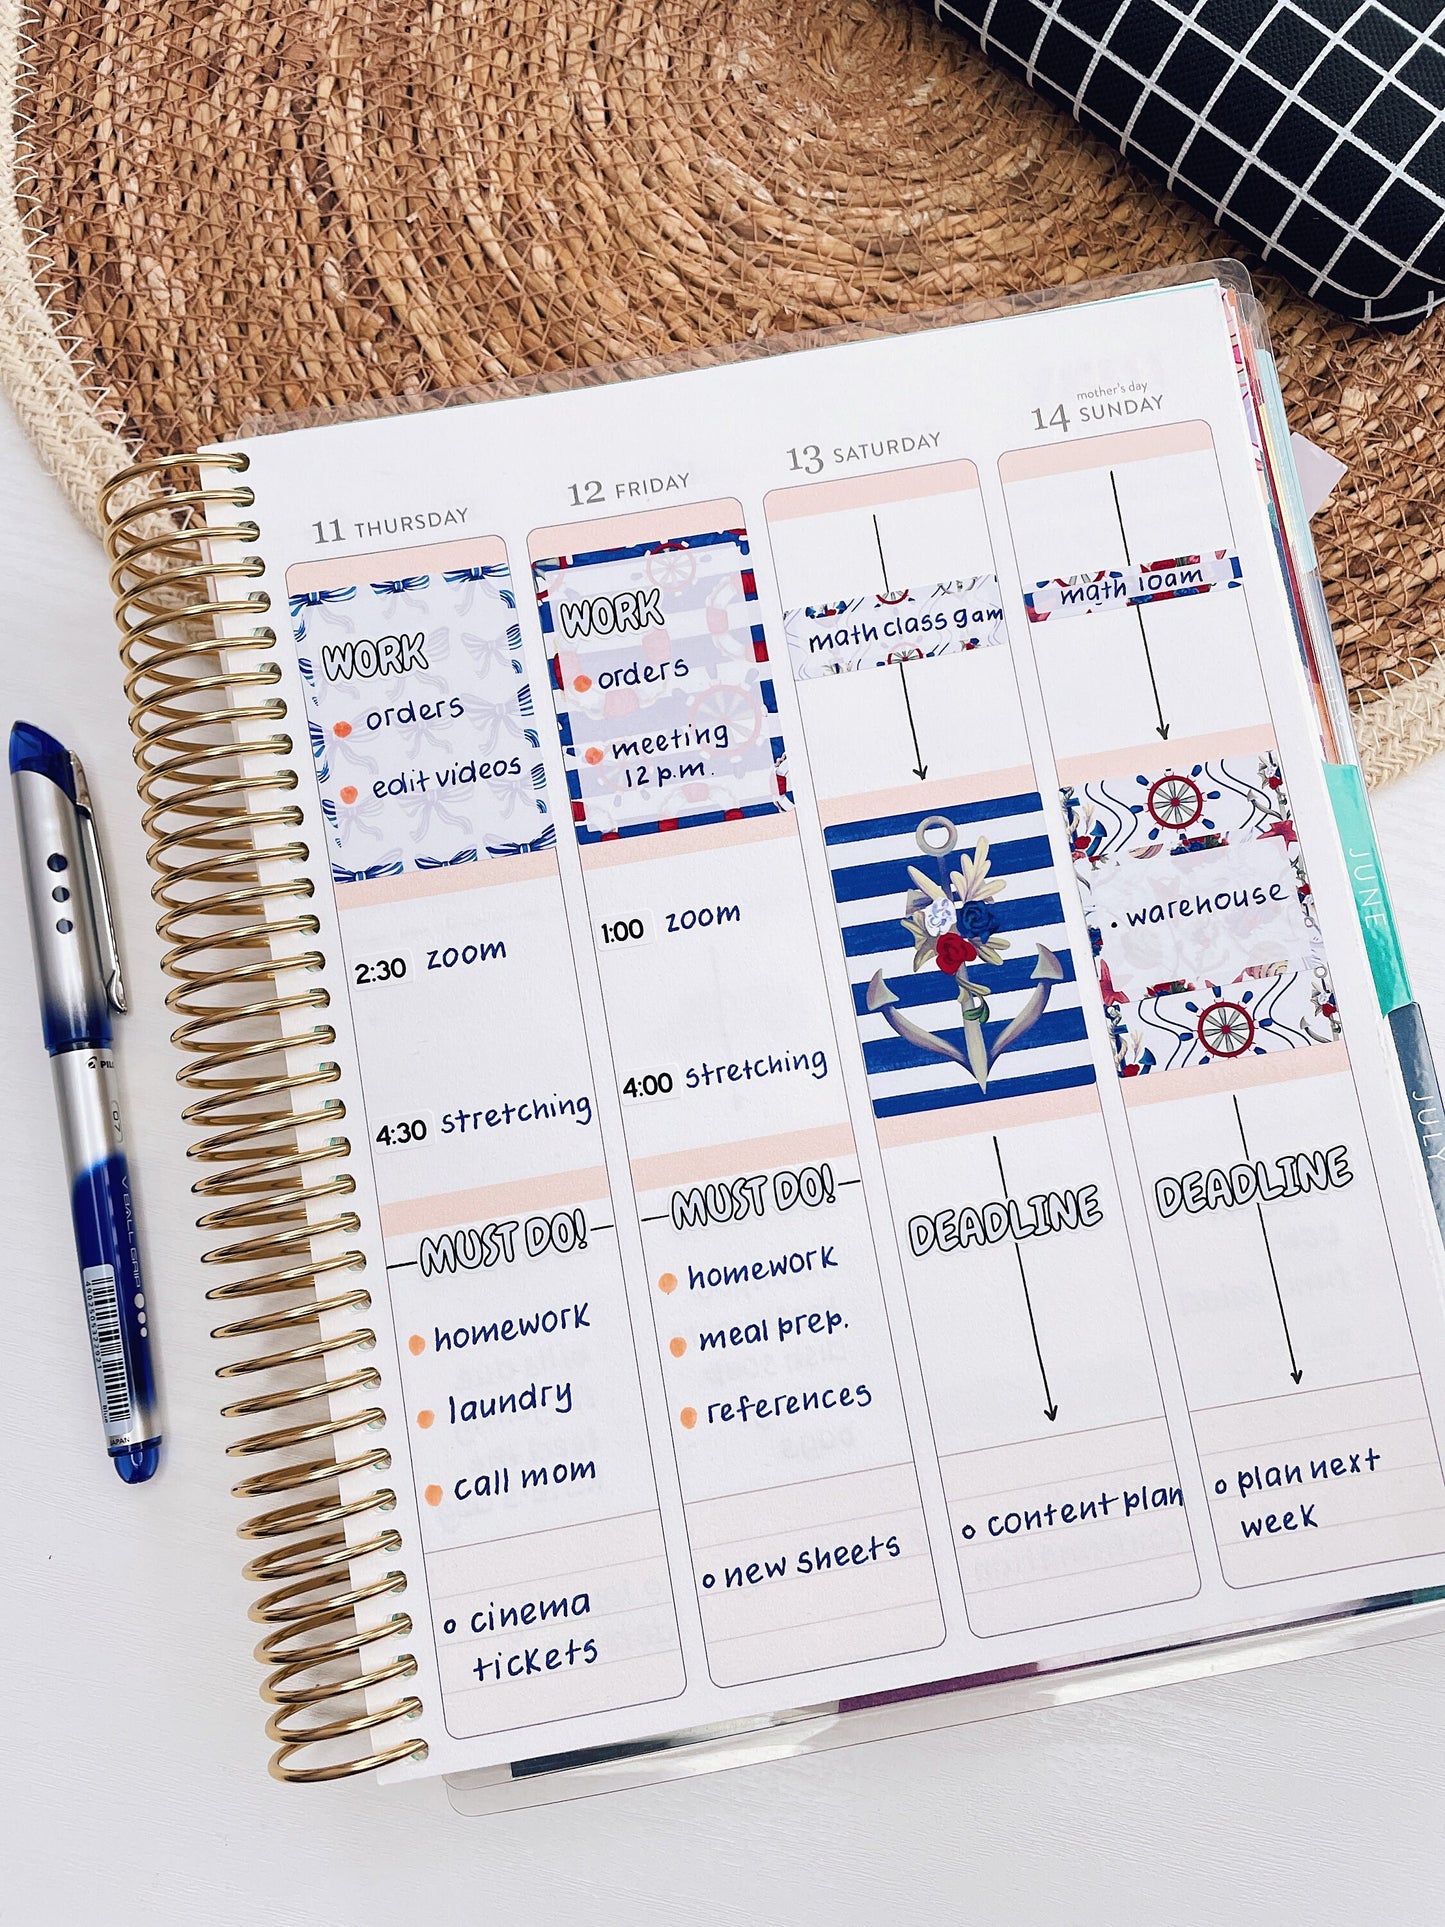 11 THURSDAY
WORK
orders
edit videos
2:30 zoom
4:30 stretching
MUST DO!
homework
laundry
call mom
cinema
tickets
12 FRIDAY
WORK
orders
meeting
12 p.m.
1:00 zoom
4:00 stretching
MUST DO!
homework
meal prep.
references
new sheets
13 SATURDAY
math class 9am
DEADLINE
content plan
mother's day
14 SUNDAY
math 10am
warehouse
DEADLINE
plan next
week
JUNE
JULY
PIL
07
V BALL GRIP
4902505322921
Blue
JAPAN